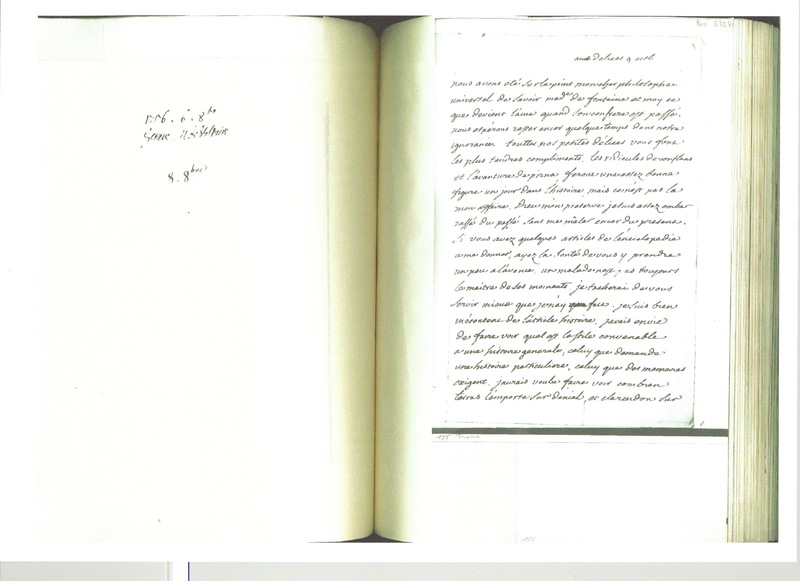 1756. 6. 8bre
8. 8bre
aux délices 9 octb
nous avons été sur le point mon cher philosophe
universel de savoir made de fontaine et moy ce
que devient l'ame quand son confrere est passé.
nous esperons rester encor quelque temps dans notre
ignorance. touttes nos petites délices vous font
les plus tendres compliments. les ridicules de conflans
et l'avanture de pirna feront une assez bonne
figure un jour dans l'histoire mais ce n'est pas la
mon affaire. Dieu m'en preserve je suis assez embar
rassé du passé sans me mêler encor du present.
si vous avez quelques articles de l'enciclopedie
a me donner, ayez la bonté de vous y prendre
un peu a l'avance. un malade n'est pas toujours
le maitre de ses moments. je tacherai de vous
servir mieux que je n'ay fait. je suis bien
mécontent de l'article histoire. j'avais envie
de faire voir quel est le stile convenable
a une histoire generale, celuy que demande
une histoire particuliere, celuy que des memoires
exigent. j'aurais voulu faire voir combien
toiras l'emporte sur daniel, et clarendon sur